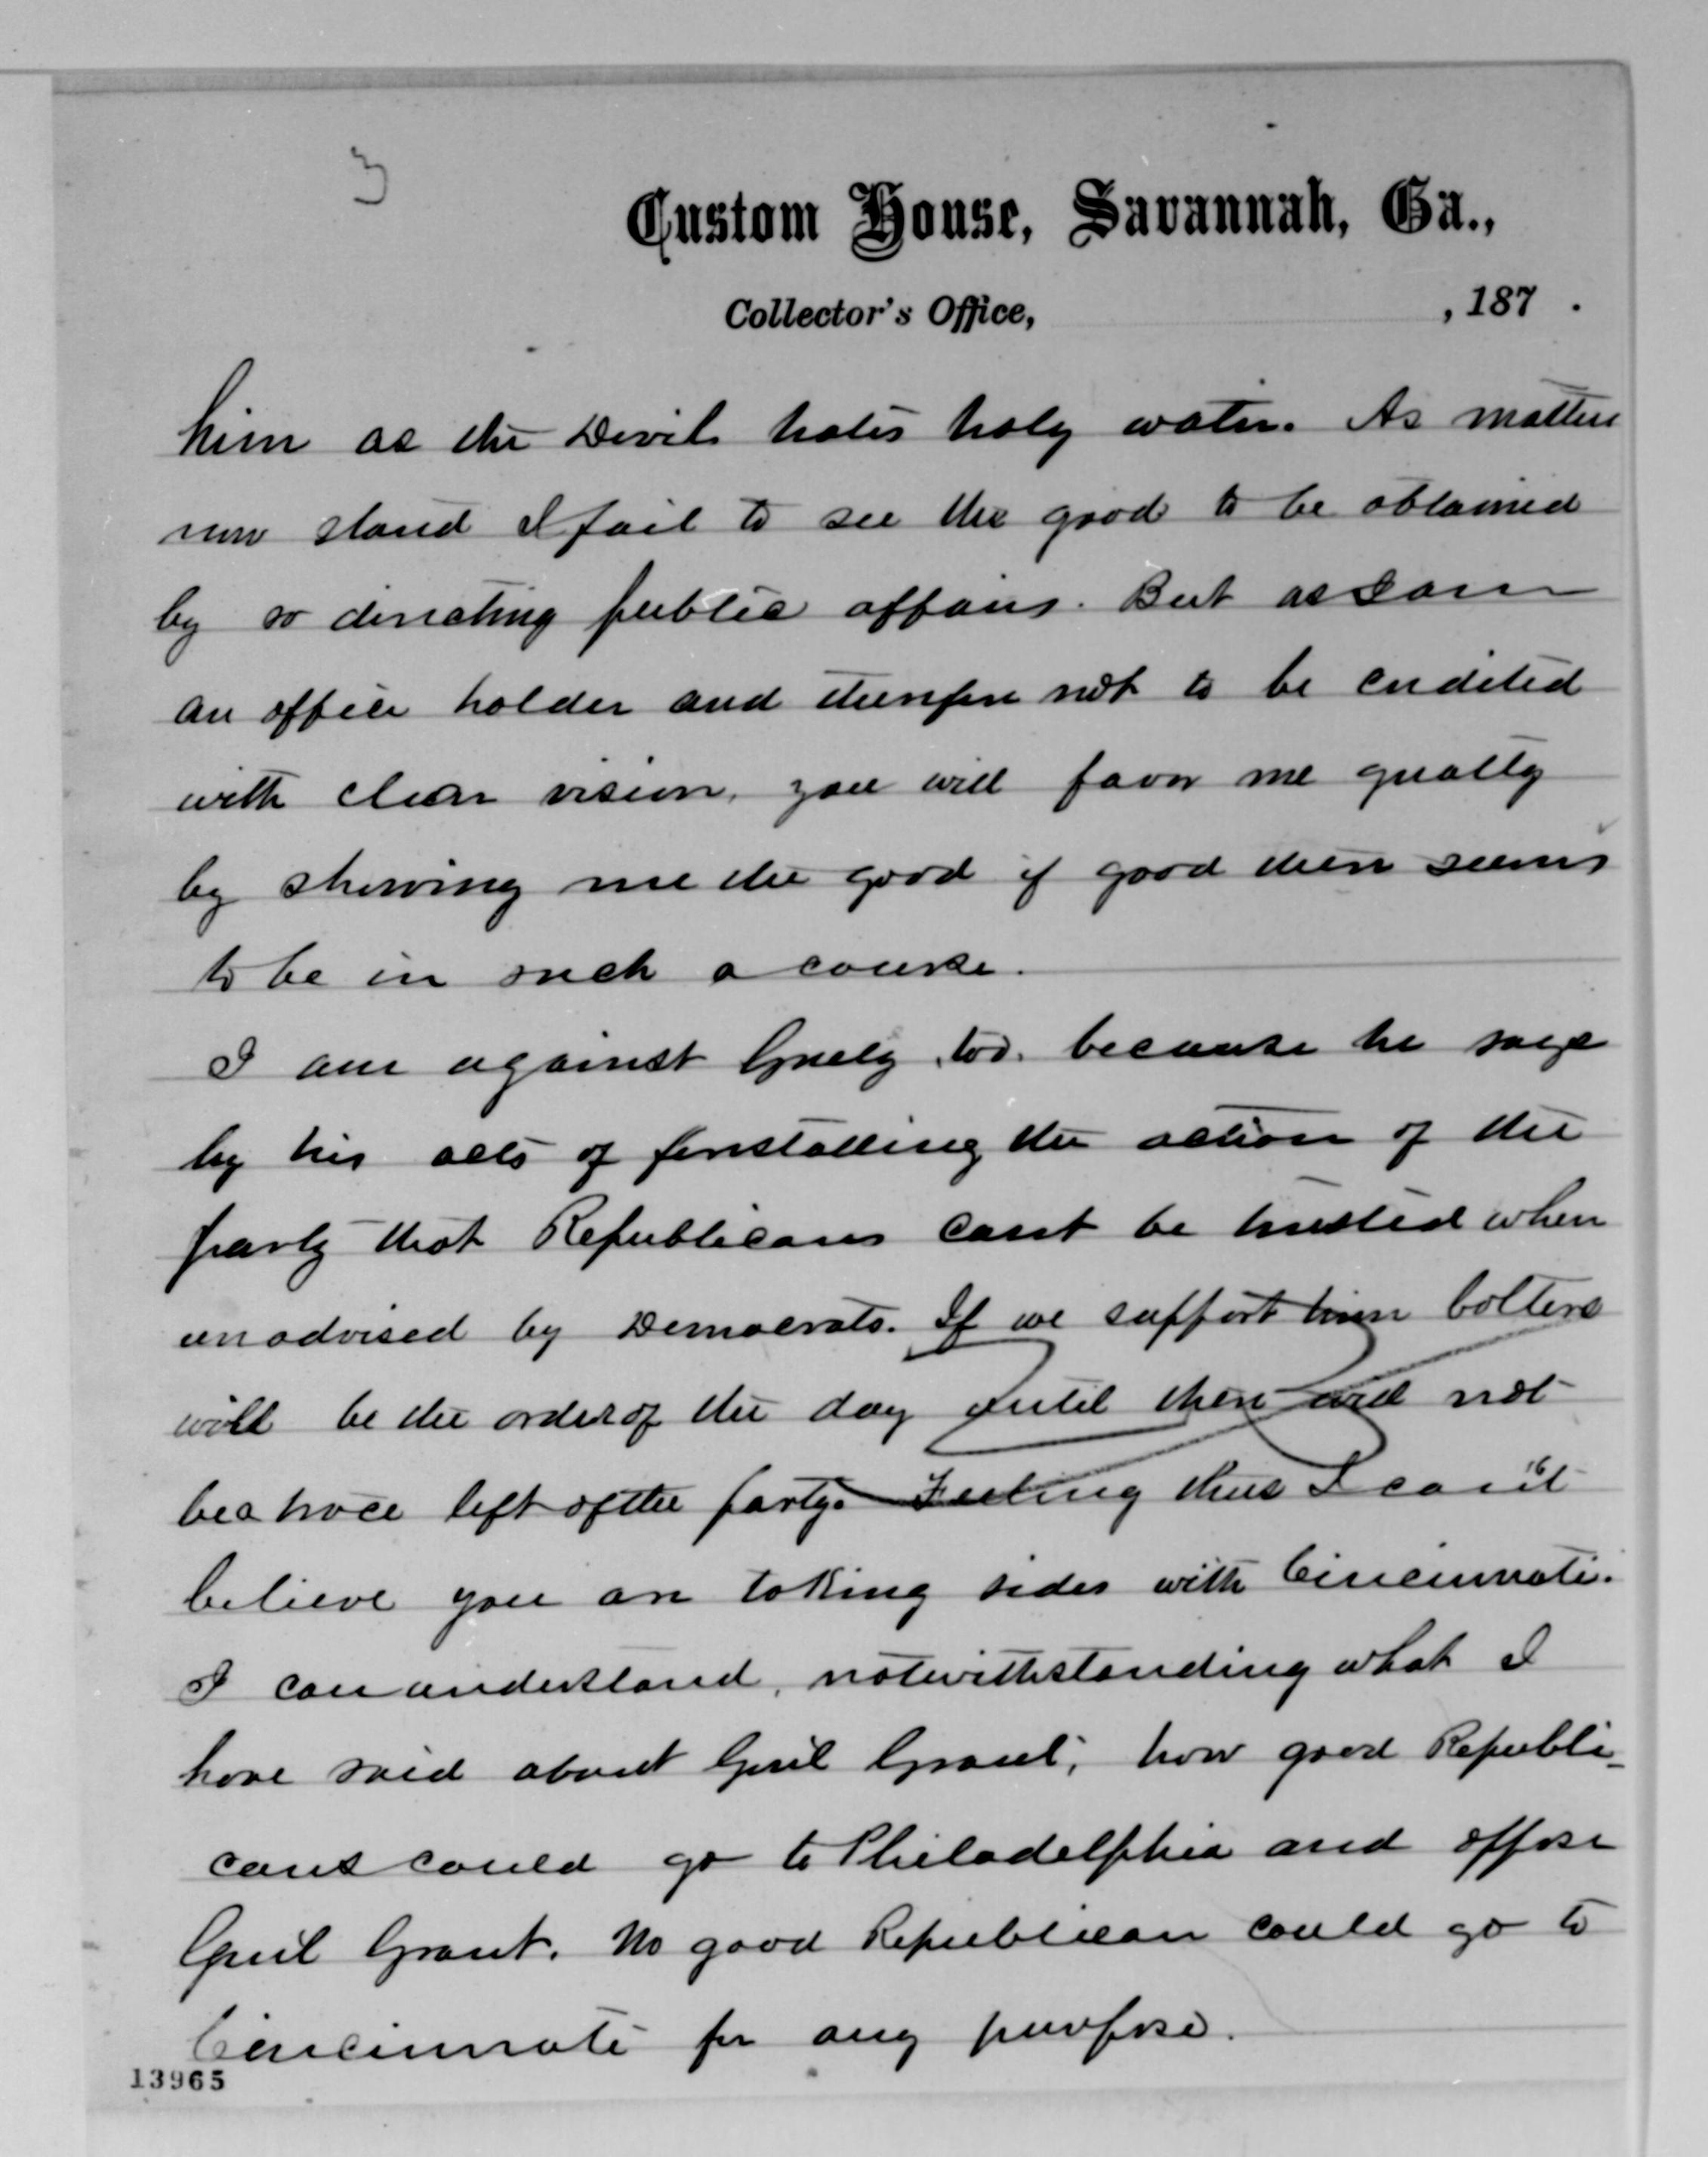 3
Custom House, Savannah, Ga.,
Collector's Office, , 187 .
him as the Devil hates holy water. As matters
now stand I fail to see the good to be obtained
by so directing public affairs. But as I am
an office holder and therefore not to be credited
with clear vision, you will favor me greatly
by showing me the good if good there seems
to be in such a course.
I am against Greely, too, because he says
by his acts of forestalling the action of the
party that Republicans cant be trusted when
unadvised by Democrats. If we support him bolters
will be the order of the day until there will not
be a trace left of the party. Feeling thus I can't
believe you are taking sides with Cincinnati.
I can understand, notwithstanding what I
have said about Genl Grant, how good Republi-
cans could go to Philadelphia and oppose
Genl Grant. No good Republican could go to
Cincinnati for any purpose.
13965